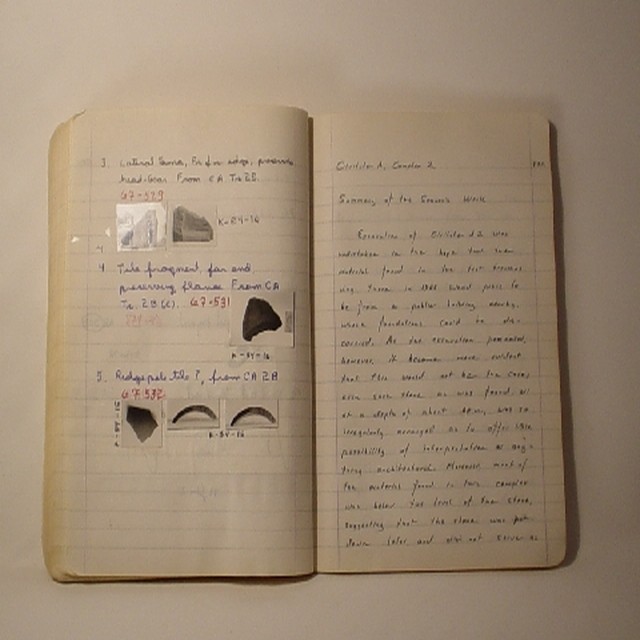 3. Lateral Sima, Fr. from edge, preserves
head-box From CA Tr. 2B.
67-529
K-24-16
4
4 Tile fragment, far end,
preserving flange From CA
Tr. 2B (c). 67-531
5. Ridgepole tile ?, from CA 2B
67-532
Civitate A, Complex 2
Summary of the Season's Work
Excavation of Civitate A 2 was
undertaken in the hope that new
material found in the test trenches
in 1966 would prove to
be from a public building nearby,
whose foundations could be dis-
covered. As the excavation proceeded,
however, it became more evident
that this would not be the case,
even such stone as was found
at a depth of about was so
irregularly arranged as to offer little
possibility of interpretation as any-
thing architectural. Moreover, most of
the material found in this complex
was below the level of these stones,
suggesting that the stone was put
down later and did not